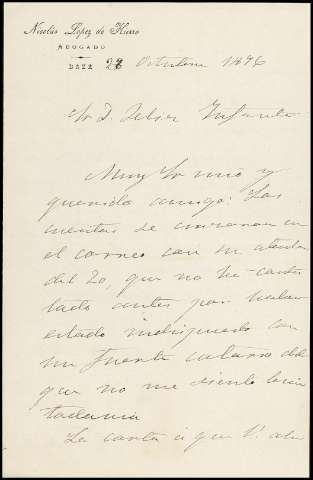 Nicolás López de Hierro
ABOGADO
BAZA 28 Octubre 1896
Sr D. Infante
Muy Sr mio y
querido amigo: Las
cuentas se
el correo con su atenta
del 20, que no he contes
tado antes por haber
estado indispuesto con
un fuerte catarro del
que no me siento bien
todavia
La carta á que V. alu